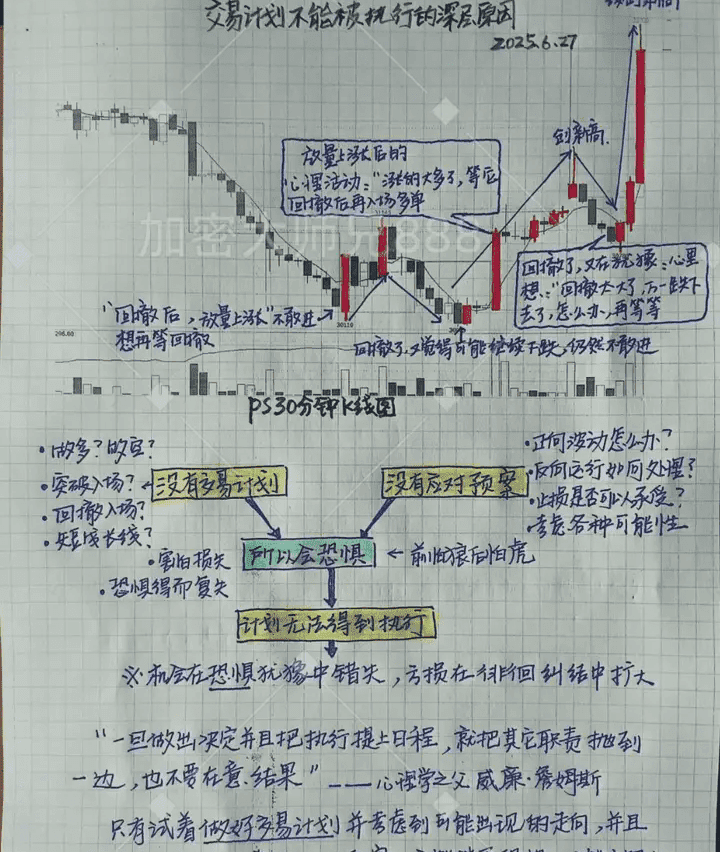 交易计划不能被执行的深层原因
2025.6.27
创新高
放量上涨后的
心理活动:"涨的太多了,等后
回撤后再入场多单
加密大师兄888
回撤了,又在犹豫:心里
想:"回撤太大了,万一跌下
去了,怎么办,再等等
"回撤后,放量上涨"不敢进
想再等回撤
30110
296.60
回撤了,又觉得可能继续下跌,仍然不敢进
PS30分钟K线图
·做多?做空?
·突破入场?
·回撤入场?
·短线长线?
没有交易计划
没有应对预案
·正向波动怎么办?
·反向运行如何处理?
·止损是否可以承受?
·考虑各种可能性
·害怕损失
·恐惧得而复失
所以会恐惧
前怕狼后怕虎
计划无法得到执行
※机会在恐惧犹豫中错失,亏损在徘徊纠结中扩大
"一旦做出决定并且把执行提上日程,就把其它职责抛到
一边,也不要在意结果"——心理学之父 威廉·詹姆斯
只有试着做好交易计划并考虑到可能出现的走向,并且